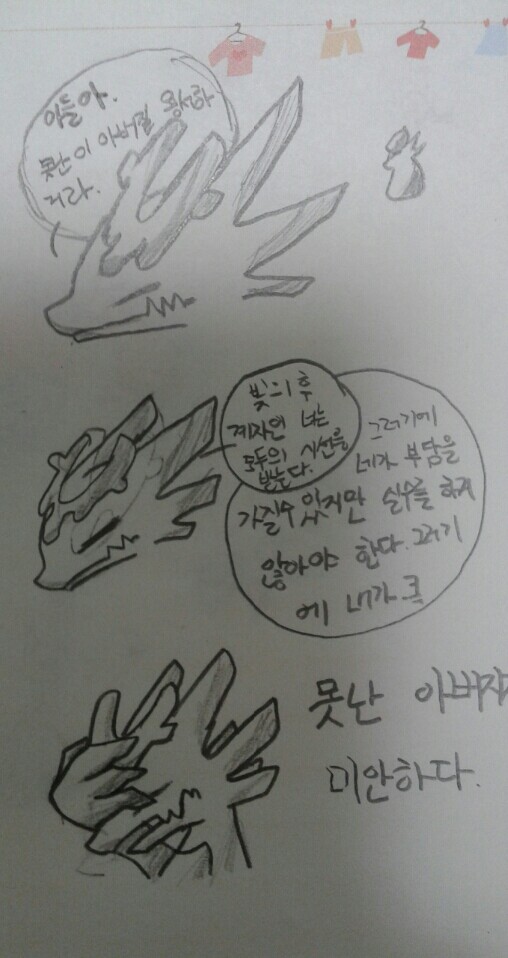 아들아.
못난 이 아버질 용서하
거라.
빛의 후
계자인 너는
모두의 시선을
받는다.
그러기에
네가 부담을
가질수 있지만 실수를 하지
않아야 한다. 그러기
에 네가 크
못난 아버지
미안하다.